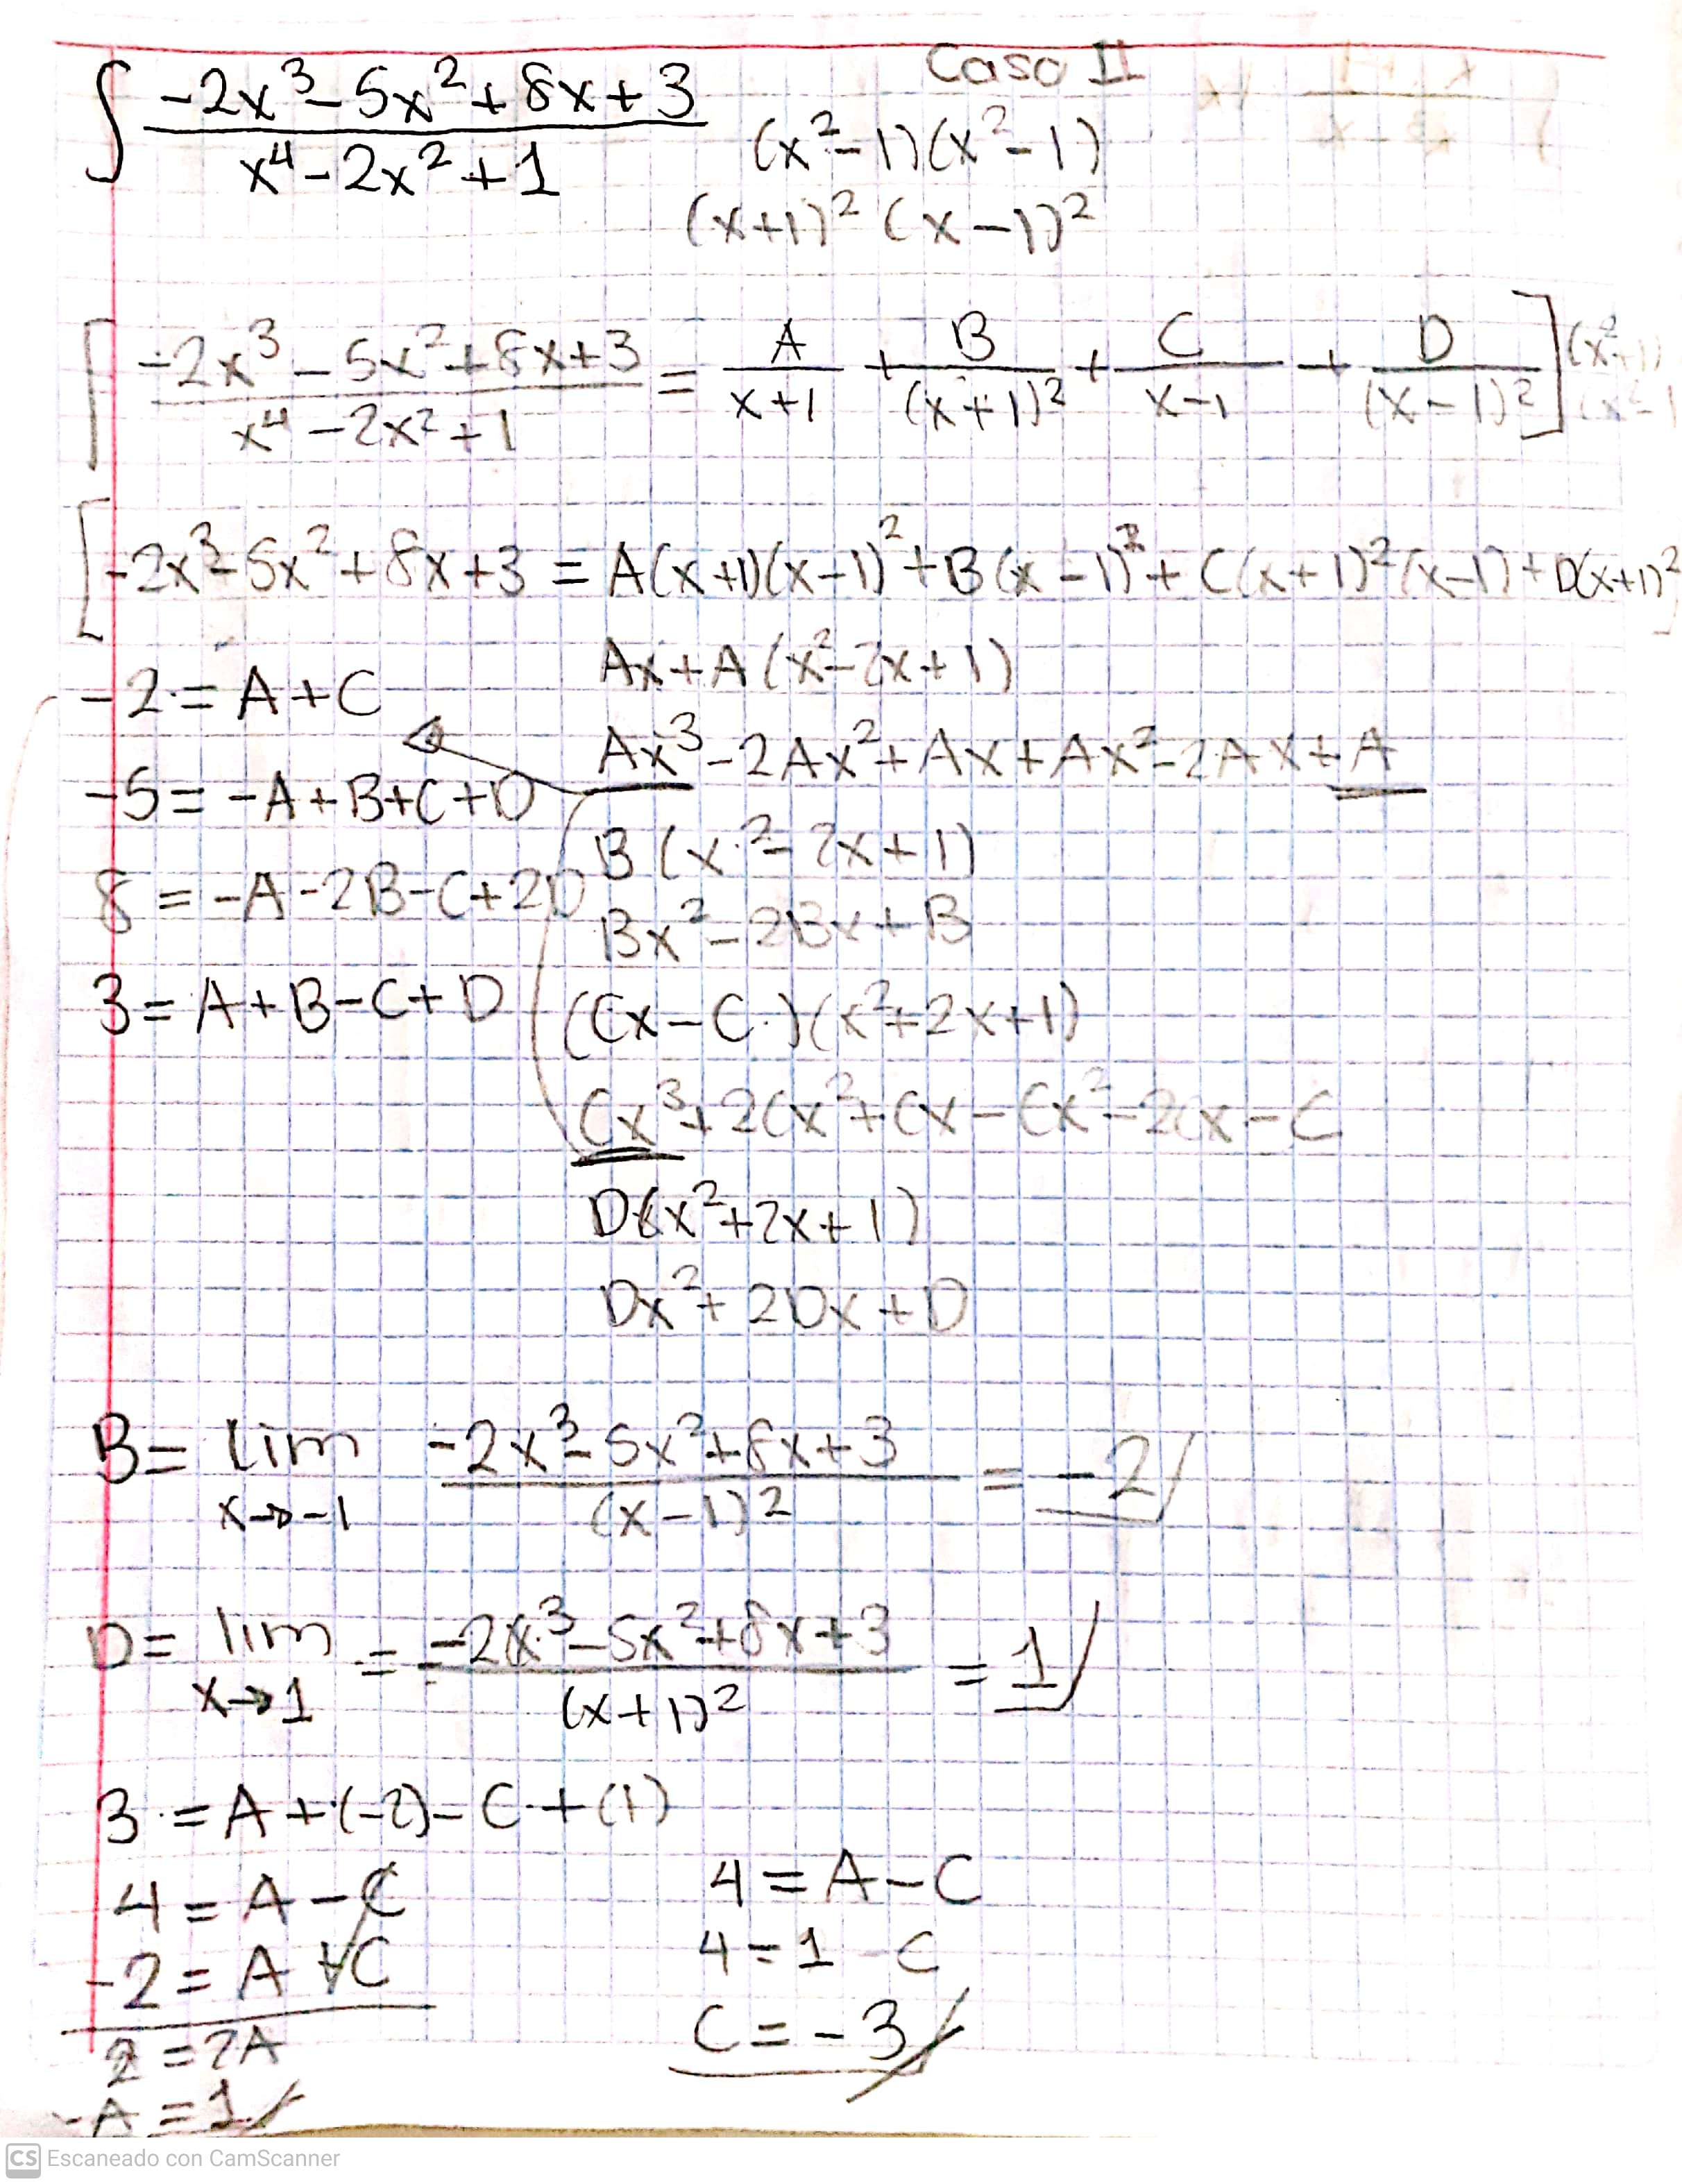 Caso II
∫ (-2x³-5x²+8x+3)/(x⁴-2x²+1)
(x²-1)(x²-1)
(x+1)²(x-1)²
[ (-2x³-5x²+8x+3)/(x⁴-2x²+1) = A/(x+1) + B/(x+1)² + C/(x-1) + D/(x-1)² ]
[-2x³-5x²+8x+3 = A(x+1)(x-1)²+B(x-1)²+C(x+1)²(x-1)+D(x+1)²]
-2=A+C
-5=-A+B+C+D
8=-A-2B-C+2D
3=A+B-C+D
Ax+A(x²-2x+1)
Ax³-2Ax²+Ax+Ax²-2Ax+A
B(x²-2x+1)
Bx²-2Bx+B
(Cx-C)(x²+2x+1)
Cx³+2Cx²+Cx-Cx²-2Cx-C
D(x²+2x+1)
Dx²+2Dx+D
B= lim x→-1 (-2x³-5x²+8x+3)/(x-1)² = -2
D= lim x→1 = (-2x³-5x²+8x+3)/(x+1)² = 1
3=A+(-2)-C+(1)
4=A-C
-2=A+C
2=2A
A=1
4=A-C
4=1-C
C=-3
CS Escaneado con CamScanner